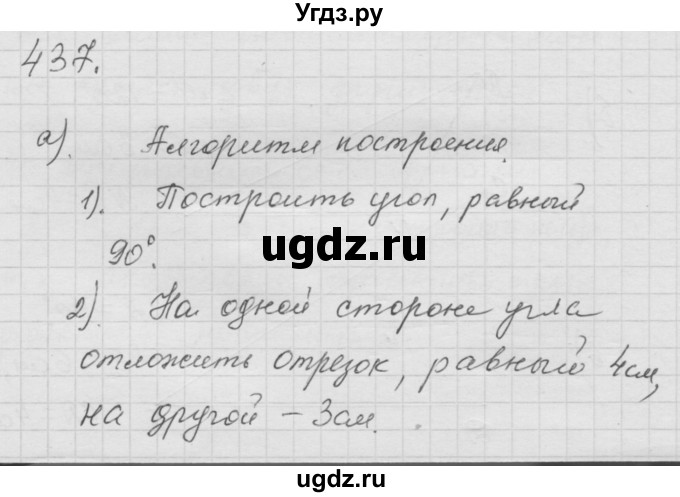 Угдз.ру
437.
а). Алгоритм построения.
1). Построить угол, равный
90°.
ugdz.ru
2). На одной стороне угла
отложить отрезок, равный 4см,
на другой – 3см.
ugdz.ru